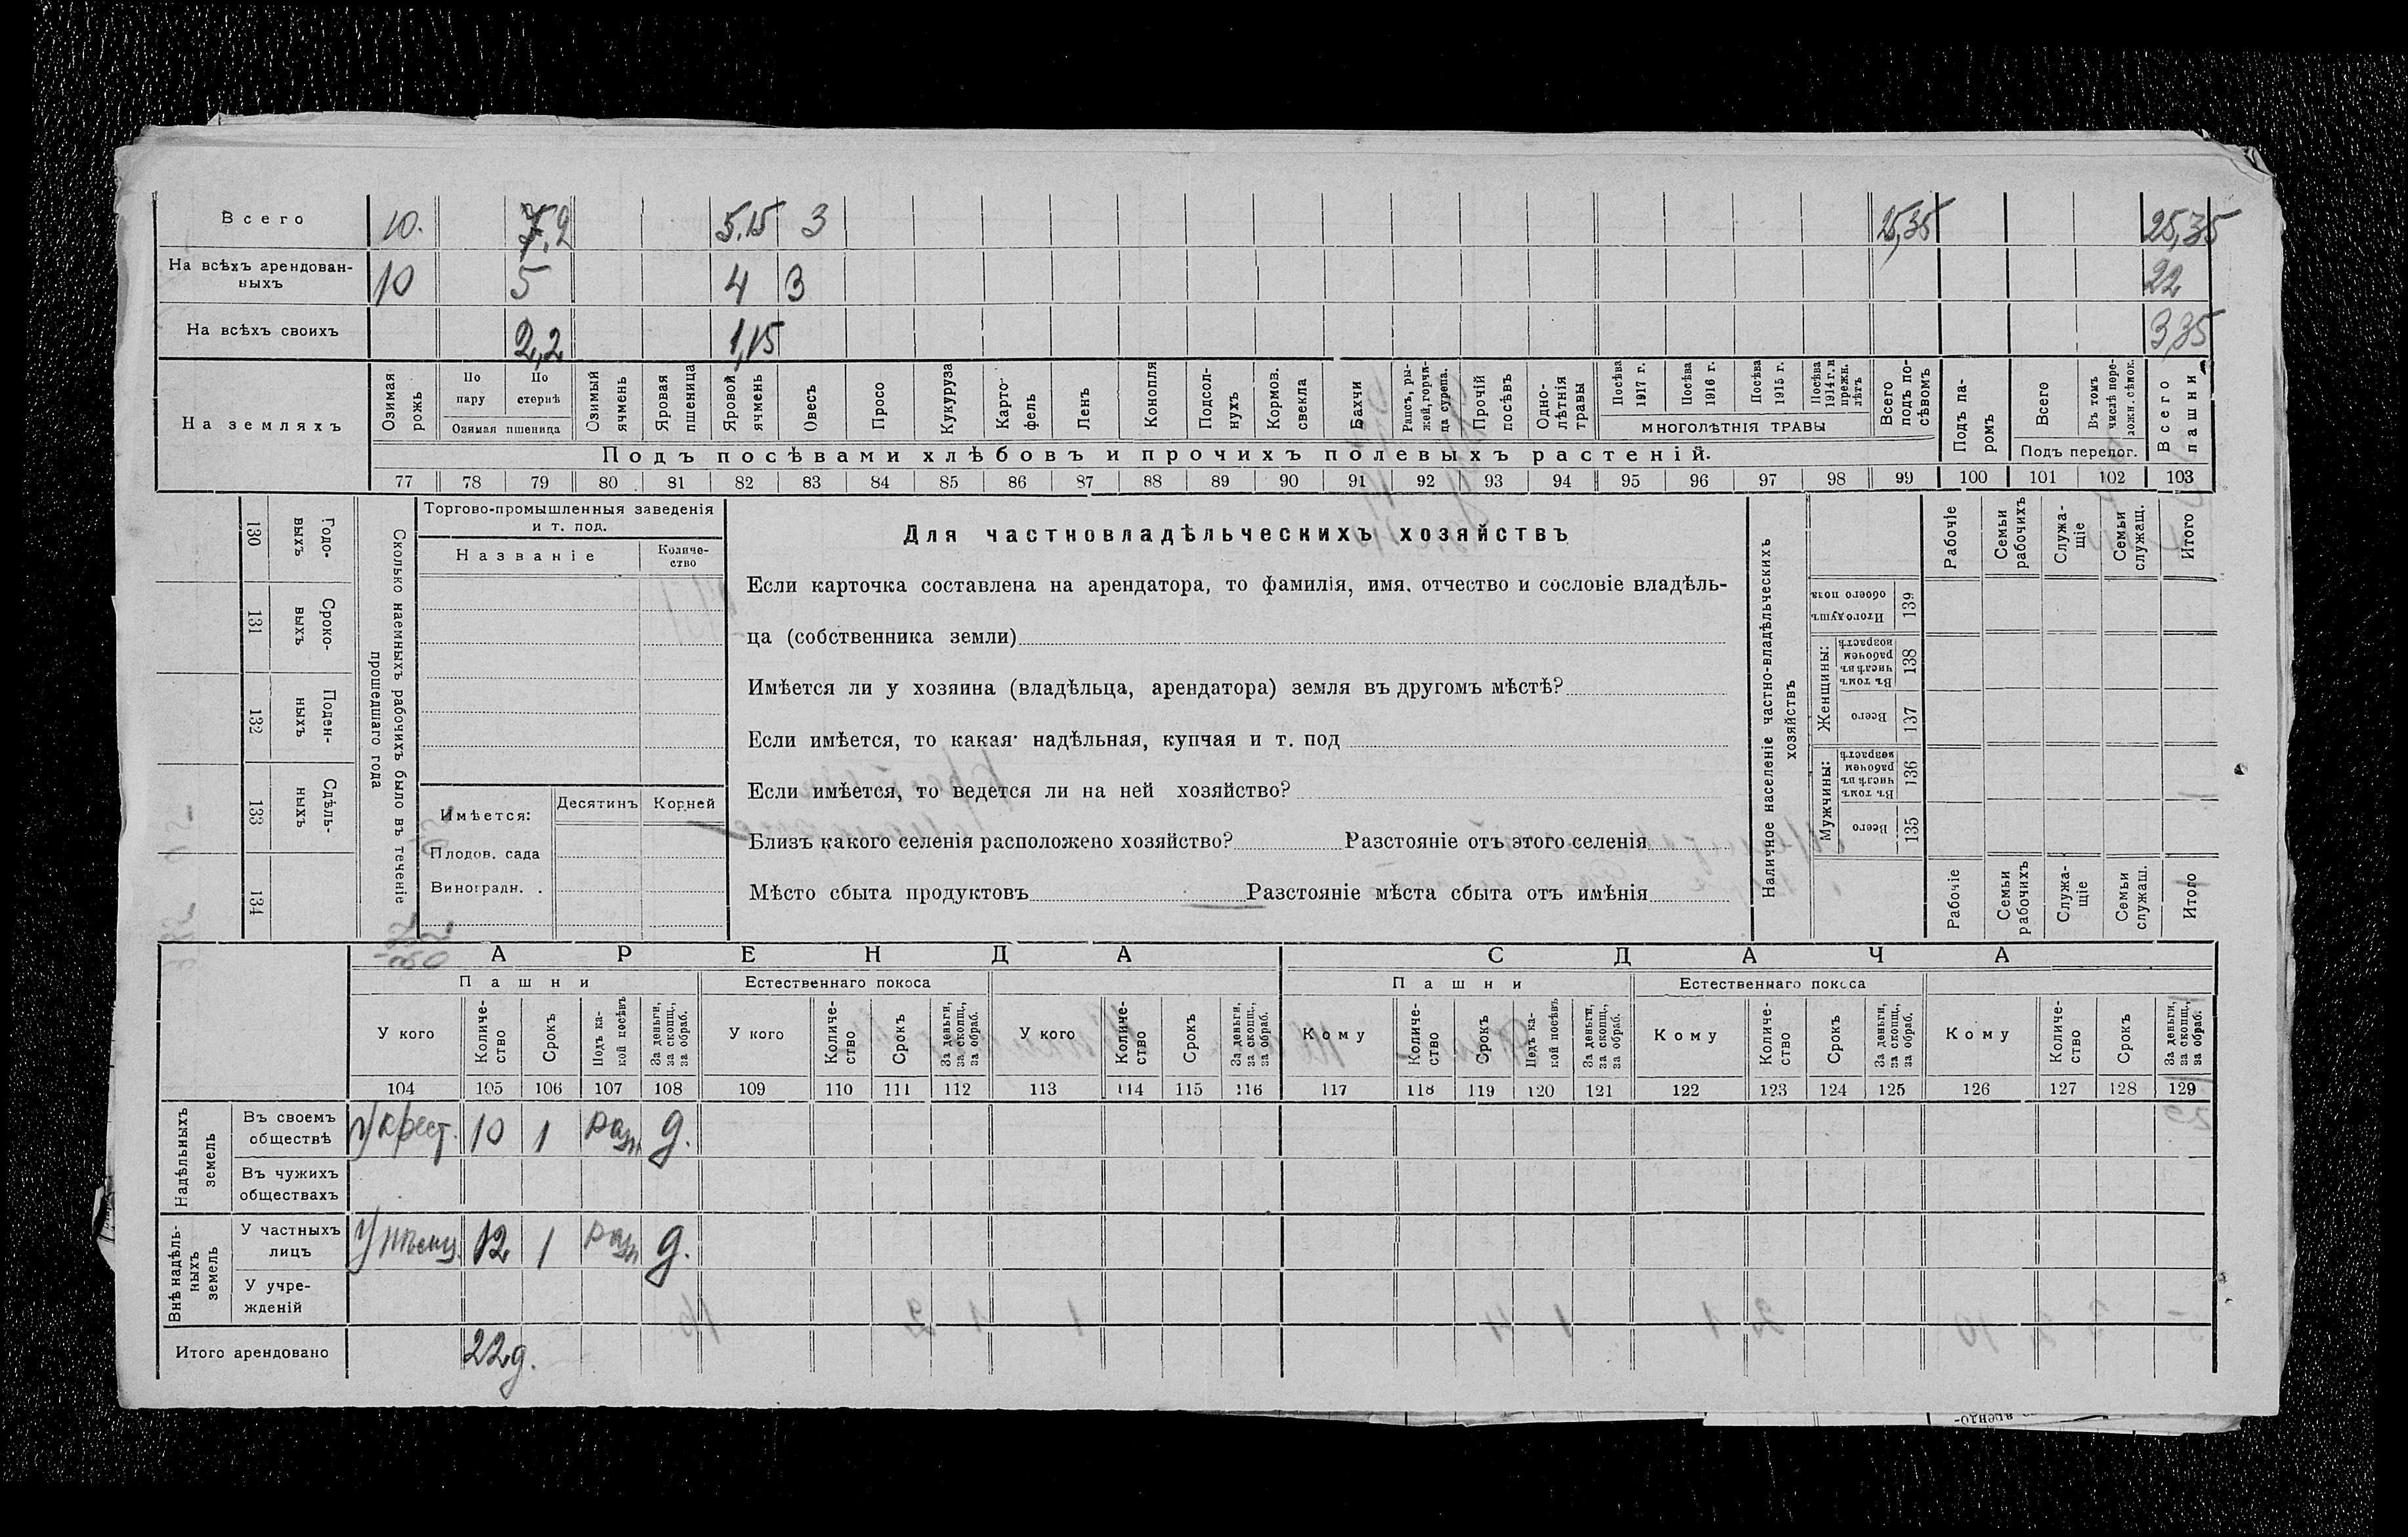 Всего 10. 7,2 5.15 3 25,35 25,35
На всѣхъ арендован-
ныхъ 10 5 4 3 22
На всѣхъ своихъ 2,2 1,15 3,35
На земляхъ
Озимая рожь
По пару
По стернѣ
Озимая пшеница
Озимый ячмень
Яровая пшеница
Яровой ячмень
Овесъ
Просо
Кукуруза
Карто-
фель
Ленъ
Конопля
Подсол-
нухъ
Кормов. свекла
Бахчи
Рапсъ, ры-
жей, горчи-
ца сурепа.
Прочій посѣвъ
Одно-
лѣтнія травы
Посѣва 1917 г.
Посѣва 1916 г.
Посѣва 1915 г.
Посѣва 1914 г. и прежн. лѣтъ
МНОГОЛѢТНІЯ ТРАВЫ
Всего подъ по-
сѣвомъ
Подъ па-
ромъ
Всего
Въ томъ числѣ пере-
ложн. сѣнок.
Подъ перелог.
Всего пашни
Подъ посѣвами хлѣбовъ и прочихъ полевыхъ растеній.
77 78 79 80 81 82 83 84 85 86 87 88 89 90 91 92 93 94 95 96 97 98 99 100 101 102 103
Сколько наемныхъ рабочихъ было въ теченіе
прошедшаго года
Годо-
выхъ
130
Сроко-
выхъ
131
Поден-
ныхъ
132
Сдѣль-
ныхъ
133
134
Торгово-промышленныя заведенія
и т. под.
Названіе
Количе-
ство
Имѣется:
Десятинъ Корней
Плодов. сада
Виноградн. .
Для частновладѣльческихъ хозяйствъ
Если карточка составлена на арендатора, то фамилія, имя, отчество и сословіе владѣль-
ца (собственника земли)
Имѣется ли у хозяина (владѣльца, арендатора) земля въ другомъ мѣстѣ?
Если имѣется, то какая· надѣльная, купчая и т. под
Если имѣется, то ведется ли на ней хозяйство?
Близъ какого селенія расположено хозяйство? Разстояніе отъ этого селенія
Мѣсто сбыта продуктовъ Разстояніе мѣста сбыта отъ имѣнія
Наличное населеніе частно-владѣльческихъ
хозяйствъ
Рабочіе
Семьи рабочихъ
Служа-
щіе
Семьи служащ.
Итого
Итого душъ обоего пола
139
Женщины:
Въ томъ числѣ въ рабочем возрастѣ
138
Всего
137
Мужчины:
Въ томъ числѣ въ рабочем возрастѣ
136
Всего
135
Рабочіе
Семьи рабочихъ
Служа-
щіе
Семьи служащ.
Итого
АРЕНДА
СДАЧА
Пашни
Естественнаго покоса
Пашни
Естественнаго покоса
У кого
Количе-
ство
Срокъ
Подъ ка-
кой посѣвъ
За деньги, за скопщ., за обраб.
У кого
Количе-
ство
Срокъ
За деньги, за скопщ., за обраб.
У кого
Количе-
ство
Срокъ
За деньги, за скопщ., за обраб.
Кому
Количе-
ство
Срокъ
Подъ ка-
кой посѣвъ
За деньги, за скопщ., за обраб.
Кому
Количе-
ство
Срокъ
За деньги, за скопщ., за обраб.
Кому
Количе-
ство
Срокъ
За деньги, за скопщ., за обраб.
104 105 106 107 108 109 110 111 112 113 114 115 116 117 118 119 120 121 122 123 124 125 126 127 128 129
Надѣльныхъ
земель
Въ своемъ
обществѣ У крест. 10 1 разн д.
Въ чужихъ
обществахъ
Внѣ надѣль-
ныхъ
земель
У частныхъ
лицъ У 12 1 разн д.
У учре-
жденій
Итого арендовано 22 д.